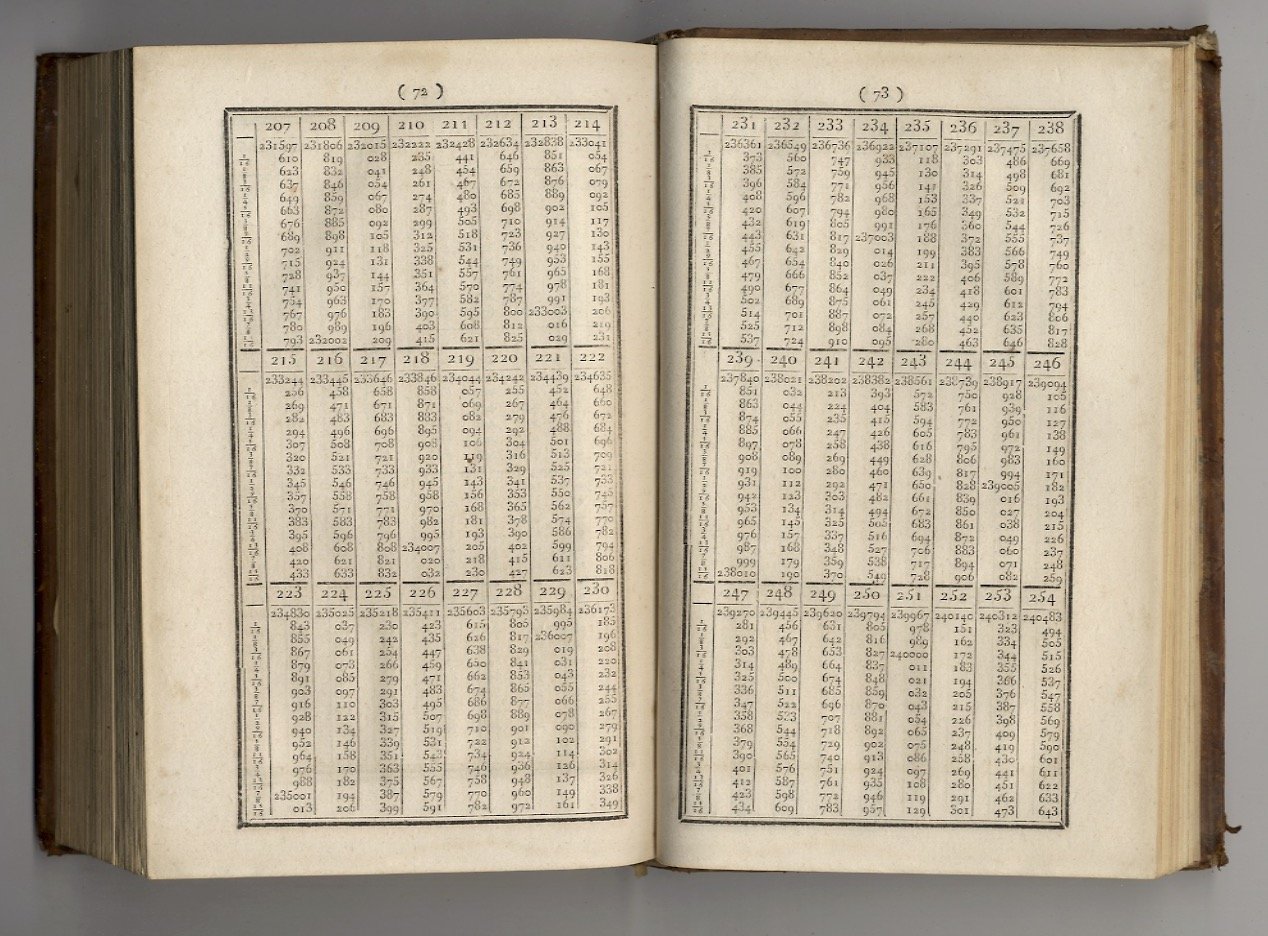 ( 72 )
207 208 209 210 211 212 213 214
231597 231806 232015 232222 232428 232634 232838 233041
1/16 610 819 028 235 441 646 851 054
1/8 623 832 041 248 454 659 863 067
3/16 637 846 054 261 467 672 876 079
1/4 649 859 067 274 480 685 889 092
5/16 663 872 080 287 493 698 902 105
3/8 676 885 092 299 505 710 914 117
7/16 689 898 105 312 518 723 927 130
1/2 702 911 118 325 531 736 940 143
9/16 715 924 131 338 544 749 953 155
5/8 728 937 144 351 557 761 965 168
11/16 741 950 157 364 570 774 978 181
3/4 754 963 170 377 582 787 991 193
13/16 767 976 183 390 595 800 233003 206
7/8 780 989 196 403 608 812 016 219
15/16 793 232002 209 415 621 825 029 231
215 216 217 218 219 220 221 222
233244 233445 233646 233846 234044 234242 234439 234635
1/16 256 458 658 858 057 255 452 648
1/8 269 471 671 871 069 267 464 660
3/16 282 483 683 883 082 279 476 672
1/4 294 496 696 895 094 292 488 684
5/16 307 508 708 908 106 304 501 696
3/8 320 521 721 920 119 316 513 709
7/16 332 533 733 933 131 329 525 721
1/2 345 546 746 945 143 341 537 733
9/16 357 558 758 958 156 353 550 745
5/8 370 571 771 970 168 365 562 757
11/16 383 583 783 982 181 378 574 770
3/4 395 596 796 995 193 390 586 782
13/16 408 608 808 234007 205 402 599 794
7/8 420 621 821 020 218 415 611 806
15/16 433 633 832 032 230 427 623 818
223 224 225 226 227 228 229 230
234830 235025 235218 235411 235603 235793 235984 236173
1/16 843 037 230 423 615 805 995 185
1/8 855 049 242 435 626 817 236007 196
3/16 867 061 254 447 638 829 019 208
1/4 879 073 266 459 650 841 031 220
5/16 891 085 279 471 662 853 043 232
3/8 903 097 291 483 674 865 055 244
7/16 916 110 303 495 686 877 066 255
1/2 928 122 315 507 698 889 078 267
9/16 940 134 327 519 710 901 090 279
5/8 952 146 339 531 722 912 102 291
11/16 964 158 351 543 734 924 114 302
3/4 976 170 363 555 746 936 126 314
13/16 988 182 375 567 758 948 137 326
7/8 235001 194 387 579 770 960 149 338
15/16 013 206 399 591 782 972 161 349
( 73 )
231 232 233 234 235 236 237 238
236361 236549 236736 236922 237107 237291 237475 237658
1/16 373 560 747 933 118 303 486 669
1/8 385 572 759 945 130 314 498 681
3/16 396 584 771 956 141 326 509 692
1/4 408 596 782 968 153 337 521 703
5/16 420 607 794 980 165 349 532 715
3/8 432 619 805 991 176 360 544 726
7/16 443 631 817 237003 188 372 555 737
1/2 455 642 829 014 199 383 566 749
9/16 467 654 840 026 211 395 578 760
5/8 479 666 852 037 222 406 589 772
11/16 490 677 864 049 234 418 601 783
3/4 502 689 875 061 245 429 612 794
13/16 514 701 887 072 257 440 623 806
7/8 525 712 898 084 268 452 635 817
15/16 537 724 910 095 280 463 646 828
239 240 241 242 243 244 245 246
237840 238021 238202 238382 238561 238739 238917 239094
1/16 851 032 213 393 572 750 928 105
1/8 863 044 224 404 583 761 939 116
3/16 874 055 235 415 594 772 950 127
1/4 885 066 247 426 605 783 961 138
5/16 897 078 258 438 616 795 972 149
3/8 908 089 269 449 628 806 983 160
7/16 919 100 280 460 639 817 994 171
1/2 931 112 292 471 650 828 239005 182
9/16 942 123 303 482 661 839 016 193
5/8 953 134 314 494 672 850 027 204
11/16 965 145 325 505 683 861 038 215
3/4 976 157 337 516 694 872 049 226
13/16 987 168 348 527 706 883 060 237
7/8 999 179 359 538 717 894 071 248
15/16 238010 190 370 549 728 906 082 259
247 248 249 250 251 252 253 254
239270 239445 239620 239794 239967 240140 240312 240483
1/16 281 456 631 805 978 151 323 494
1/8 292 467 642 816 989 162 334 505
3/16 303 478 653 827 240000 172 344 515
1/4 314 489 664 837 011 183 355 526
5/16 325 500 674 848 021 194 366 537
3/8 336 511 685 859 032 205 376 547
7/16 347 522 696 870 043 215 387 558
1/2 358 533 707 881 054 226 398 569
9/16 368 544 718 892 065 237 409 579
5/8 379 554 729 902 075 248 419 590
11/16 390 565 740 913 086 258 430 601
3/4 401 576 751 924 097 269 441 611
13/16 412 587 761 935 108 280 451 622
7/8 423 598 772 946 119 291 462 633
15/16 434 609 783 957 129 301 473 643